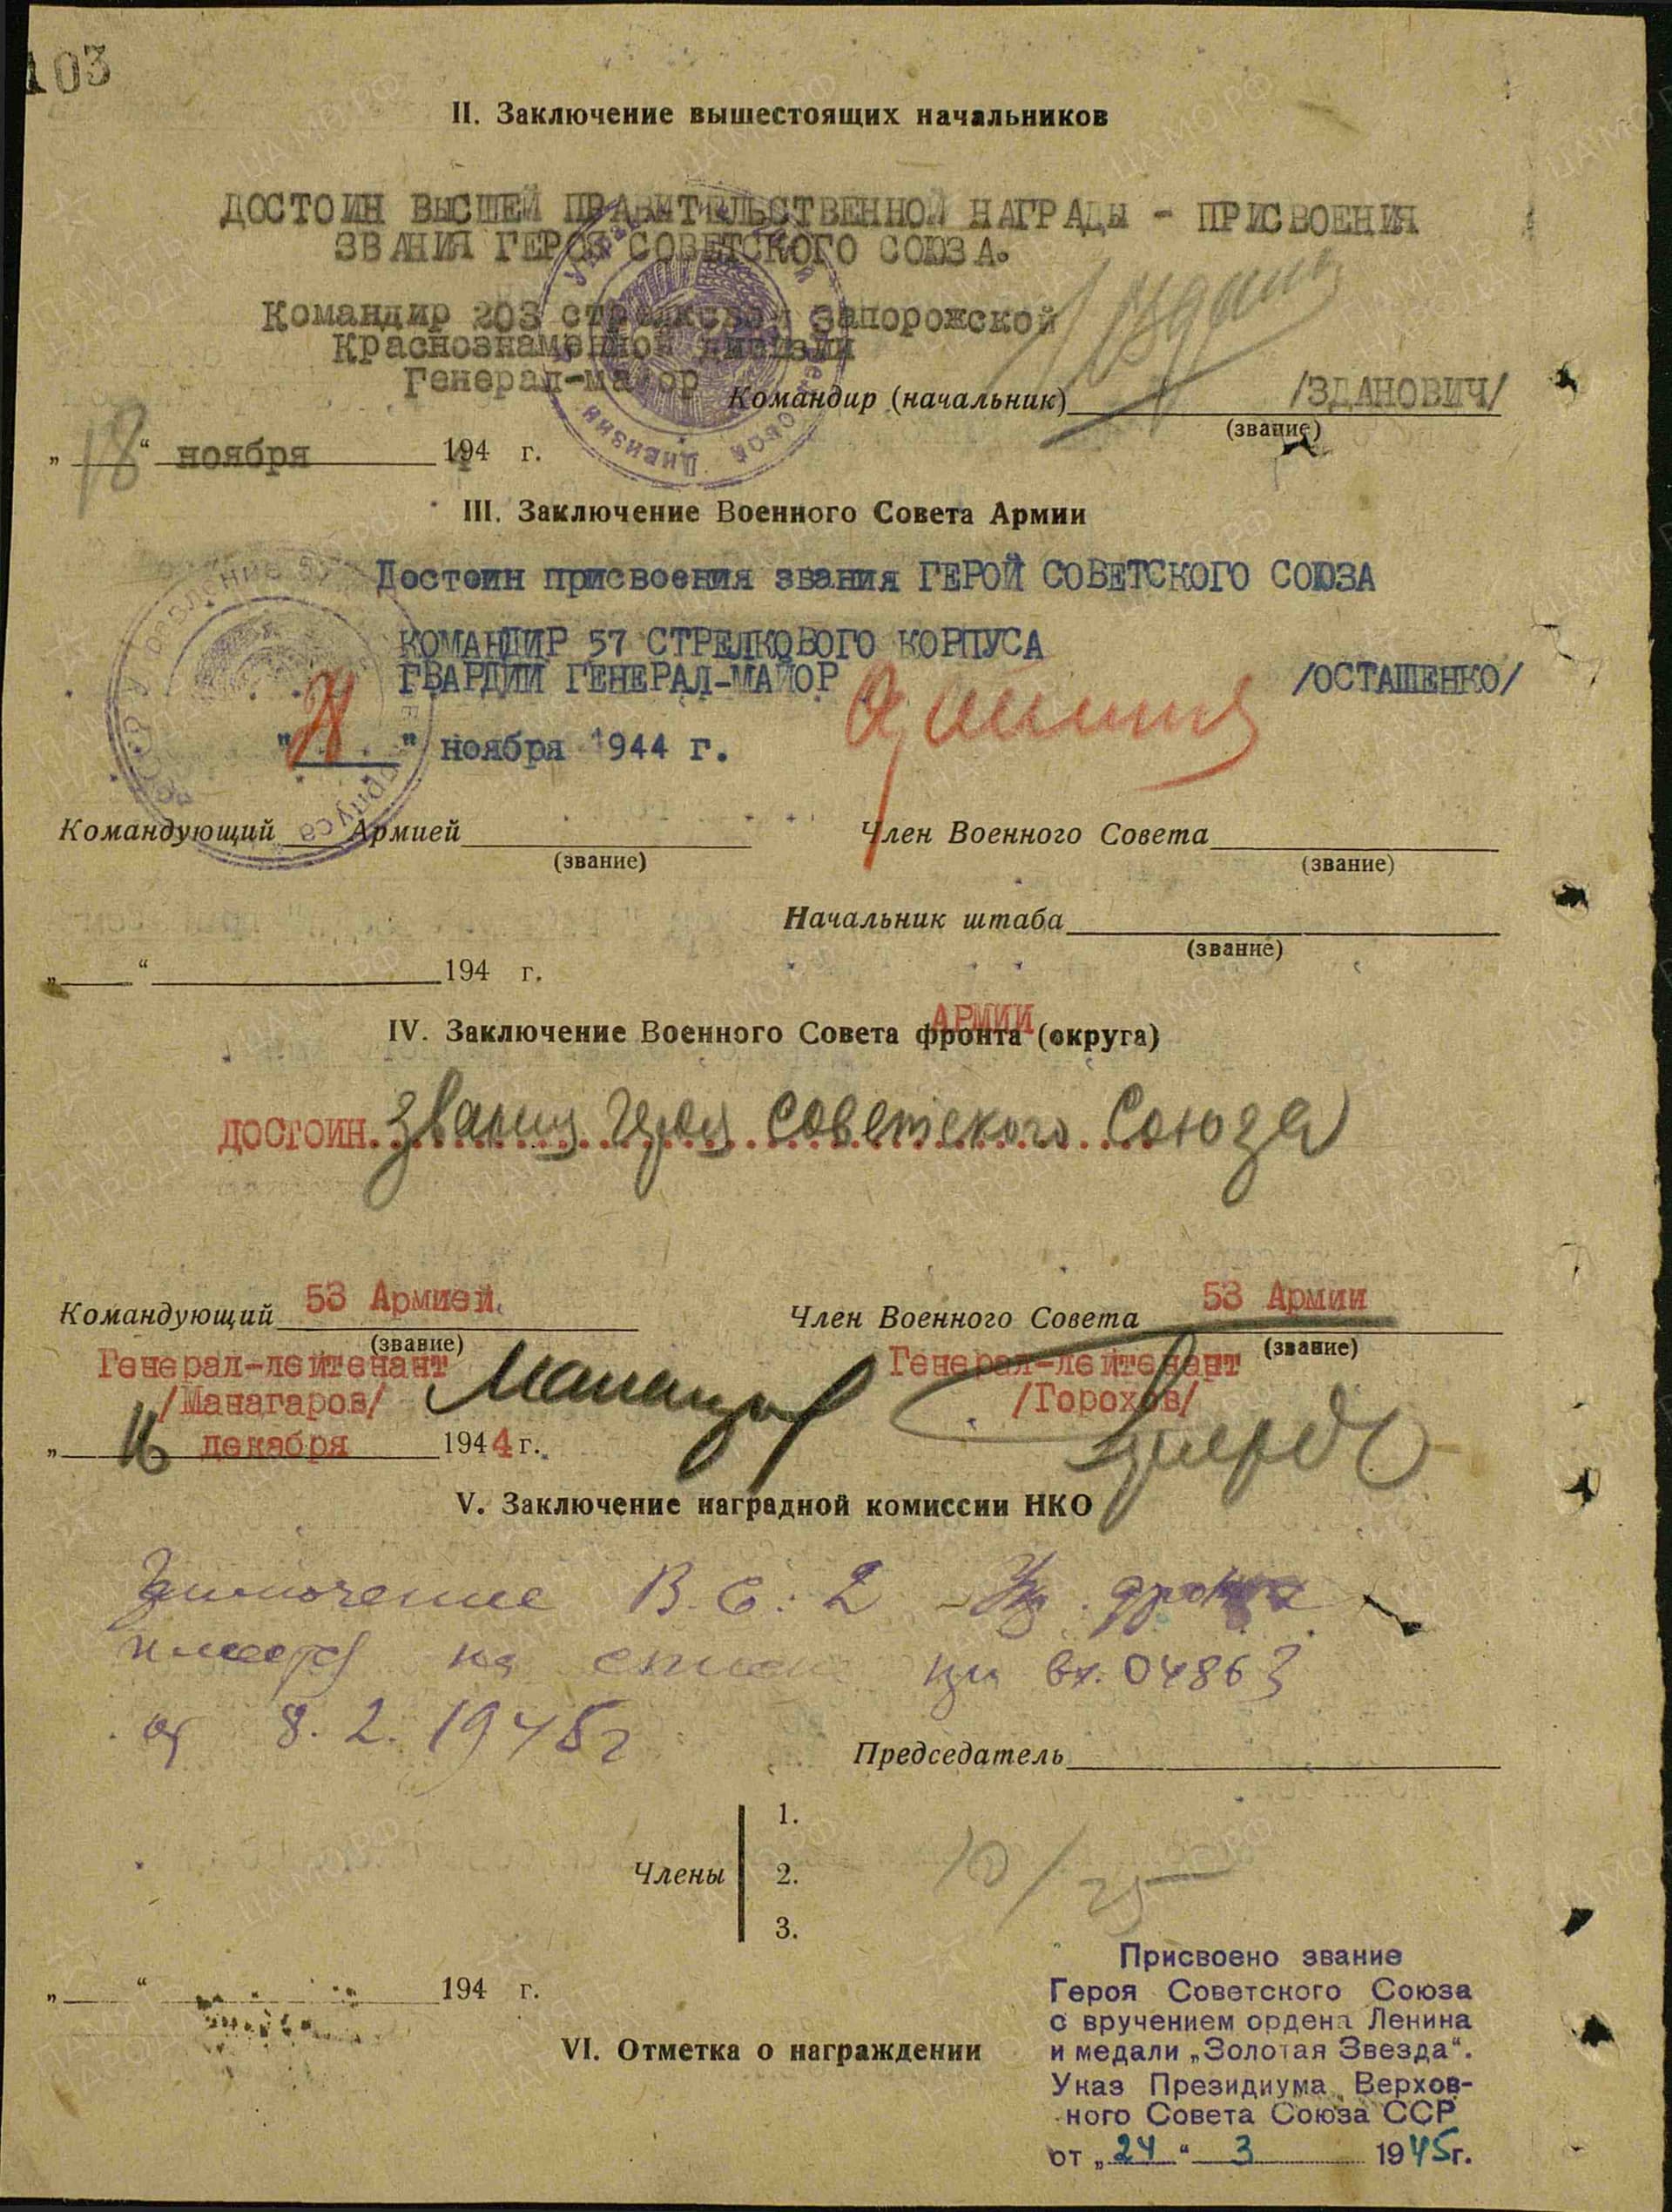 103
II. Заключение вышестоящих начальников
ДОСТОИН ВЫСШЕЙ ПРАВИТЕЛЬСТВЕННОЙ НАГРАДЫ - ПРИСВОЕНИЯ
ЗВАНИЯ ГЕРОЯ СОВЕТСКОГО СОЮЗА.
Командир 203 стрелковой Запорожской
Краснознаменной дивизии
Генерал-майор
Командир (начальник) /ЗДАНОВИЧ/
(звание)
„18“ ноября 1944 г.
III. Заключение Военного Совета Армии
Достоин присвоения звания ГЕРОЙ СОВЕТСКОГО СОЮЗА
КОМАНДИР 57 СТРЕЛКОВОГО КОРПУСА
ГВАРДИИ ГЕНЕРАЛ-МАЙОР /ОСТАШЕНКО/
" " ноября 1944 г.
Командующий Армией Член Военного Совета
(звание) (звание)
Начальник штаба
(звание)
„ “ 194 г.
АРМИИ
IV. Заключение Военного Совета фронта (округа)
ДОСТОИН звания Героя Советского Союза
Командующий 53 Армией Член Военного Совета 53 Армии
(звание) (звание)
Генерал-лейтенант Генерал-лейтенант
/Манагаров/ /Горохов/
„16 декабря 1944 г.
V. Заключение наградной комиссии НКО
Заключение В.С. 2 Укр. фронта
имеется на списке при вх. 04863
от 8.2.1945г
Председатель
1.
Члены 2.
3.
10/25
„ “ 194 г.
VI. Отметка о награждении
Присвоено звание
Героя Советского Союза
с вручением ордена Ленина
и медали „Золотая Звезда“.
Указ Президиума Верхов-
ного Совета Союза ССР
от „24“ 3 1945г.